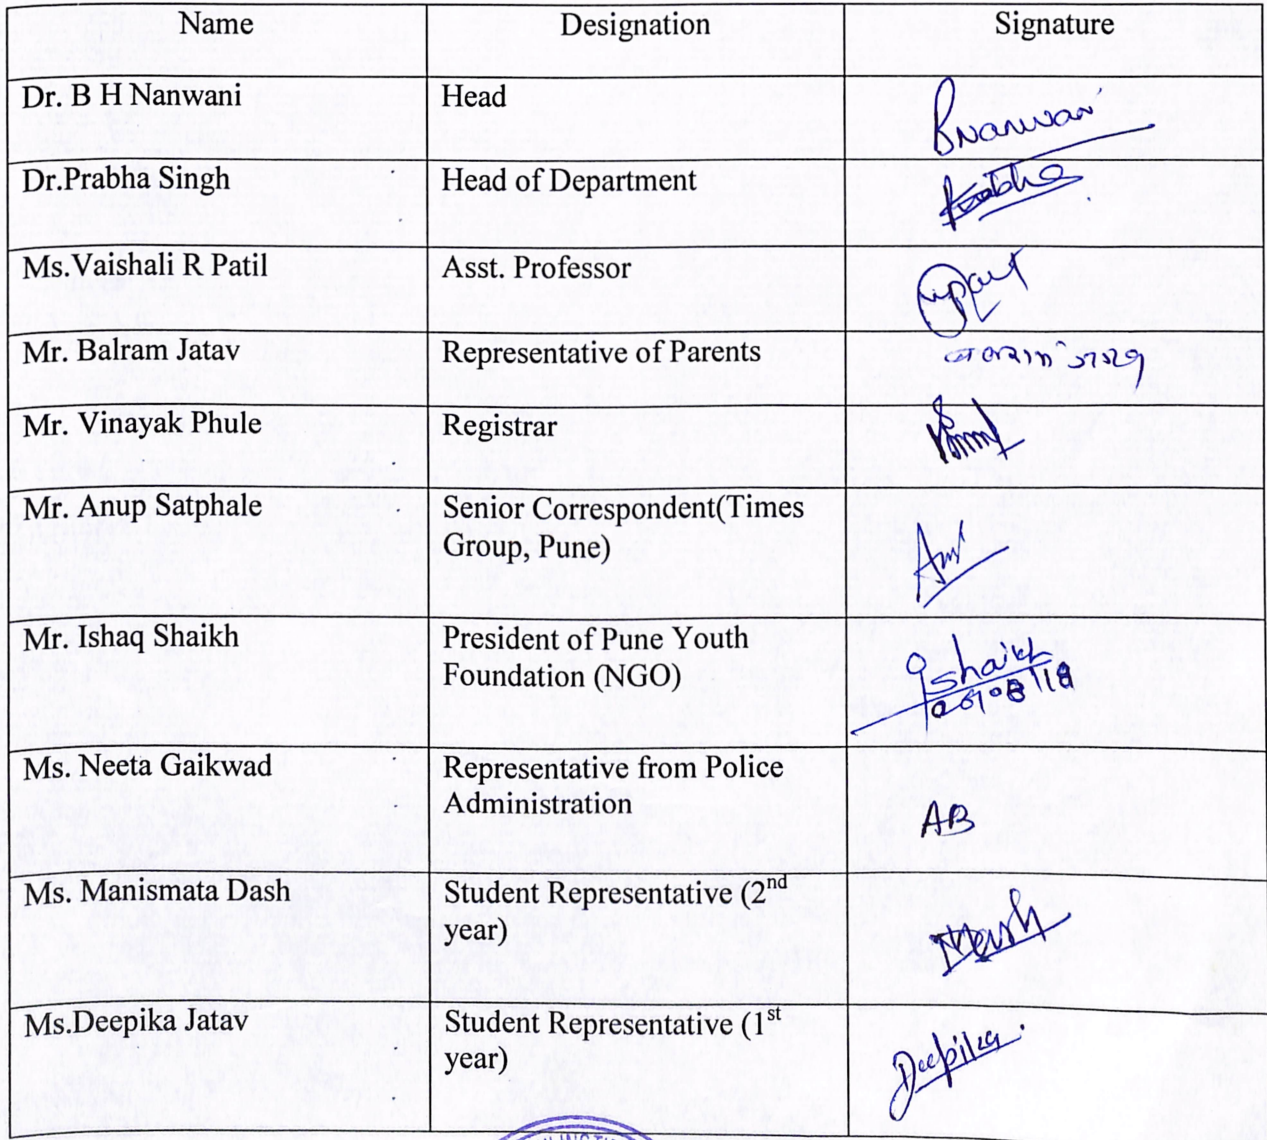 Name Designation Signature
Dr. B H Nanwani Head Bnanwani
Dr.Prabha Singh Head of Department Prabha
Ms.Vaishali R Patil Asst. Professor
Mr. Balram Jatav Representative of Parents
Mr. Vinayak Phule Registrar
Mr. Anup Satphale Senior Correspondent(Times
Group, Pune)
Mr. Ishaq Shaikh President of Pune Youth
Foundation (NGO) Ishaikh
Ms. Neeta Gaikwad Representative from Police
Administration AB
Ms. Manismata Dash Student Representative (2nd
year)
Ms.Deepika Jatav Student Representative (1st
year) Deepika